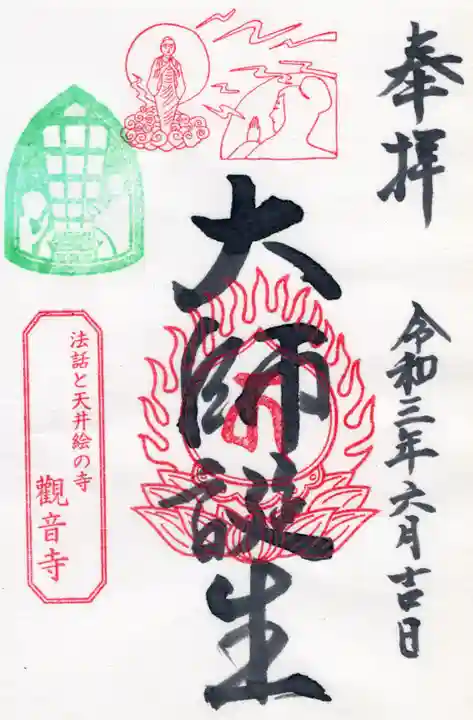 奉拝
令和三年六月吉日
大師誕生
法話と天井絵の寺
觀音寺